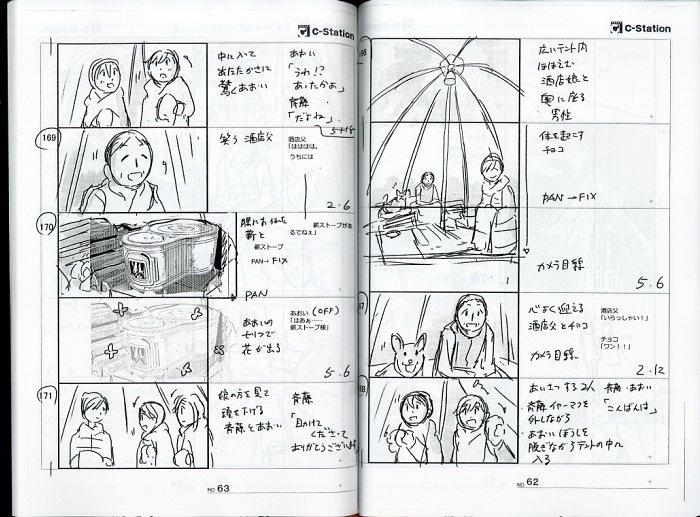 C-Station
広いテント内
ほほえむ
酒店娘と
奥に座る
男性
体を起こす
チョコ
PAN→FIX
カメラ目線
5.6
心よく迎える
酒店父とチョコ
カメラ目線
酒店父
「いらっしゃい!」
チョコ
「ワン!!」
2.12
あいさつする2人
斉藤イヤーマフを
外しながら
あおいぼうしを
脱ぎながらテントの中に
入る
斉藤・あおい
「こんばんは」
NO 62
C-Station
中に入って
あたたかさに
驚くあおい
あおい
「うわ!?
あったかぁ」
斉藤
「だよね」
169
笑う酒店父
酒店父
「はははは、
うちには
2.6
170
薪と
薪ストーブ
PAN→FIX
薪ストーブがあ
るでねぇ」
PAN
あおいの
セリフで
花が出る
あおい(OFF)
「はあぁ──
薪ストーブ様」
5.6
171
娘の方を見て
頭を下げる
斉藤とあおい
斉藤
「助けて
くださって
ありがとうございます
NO 63